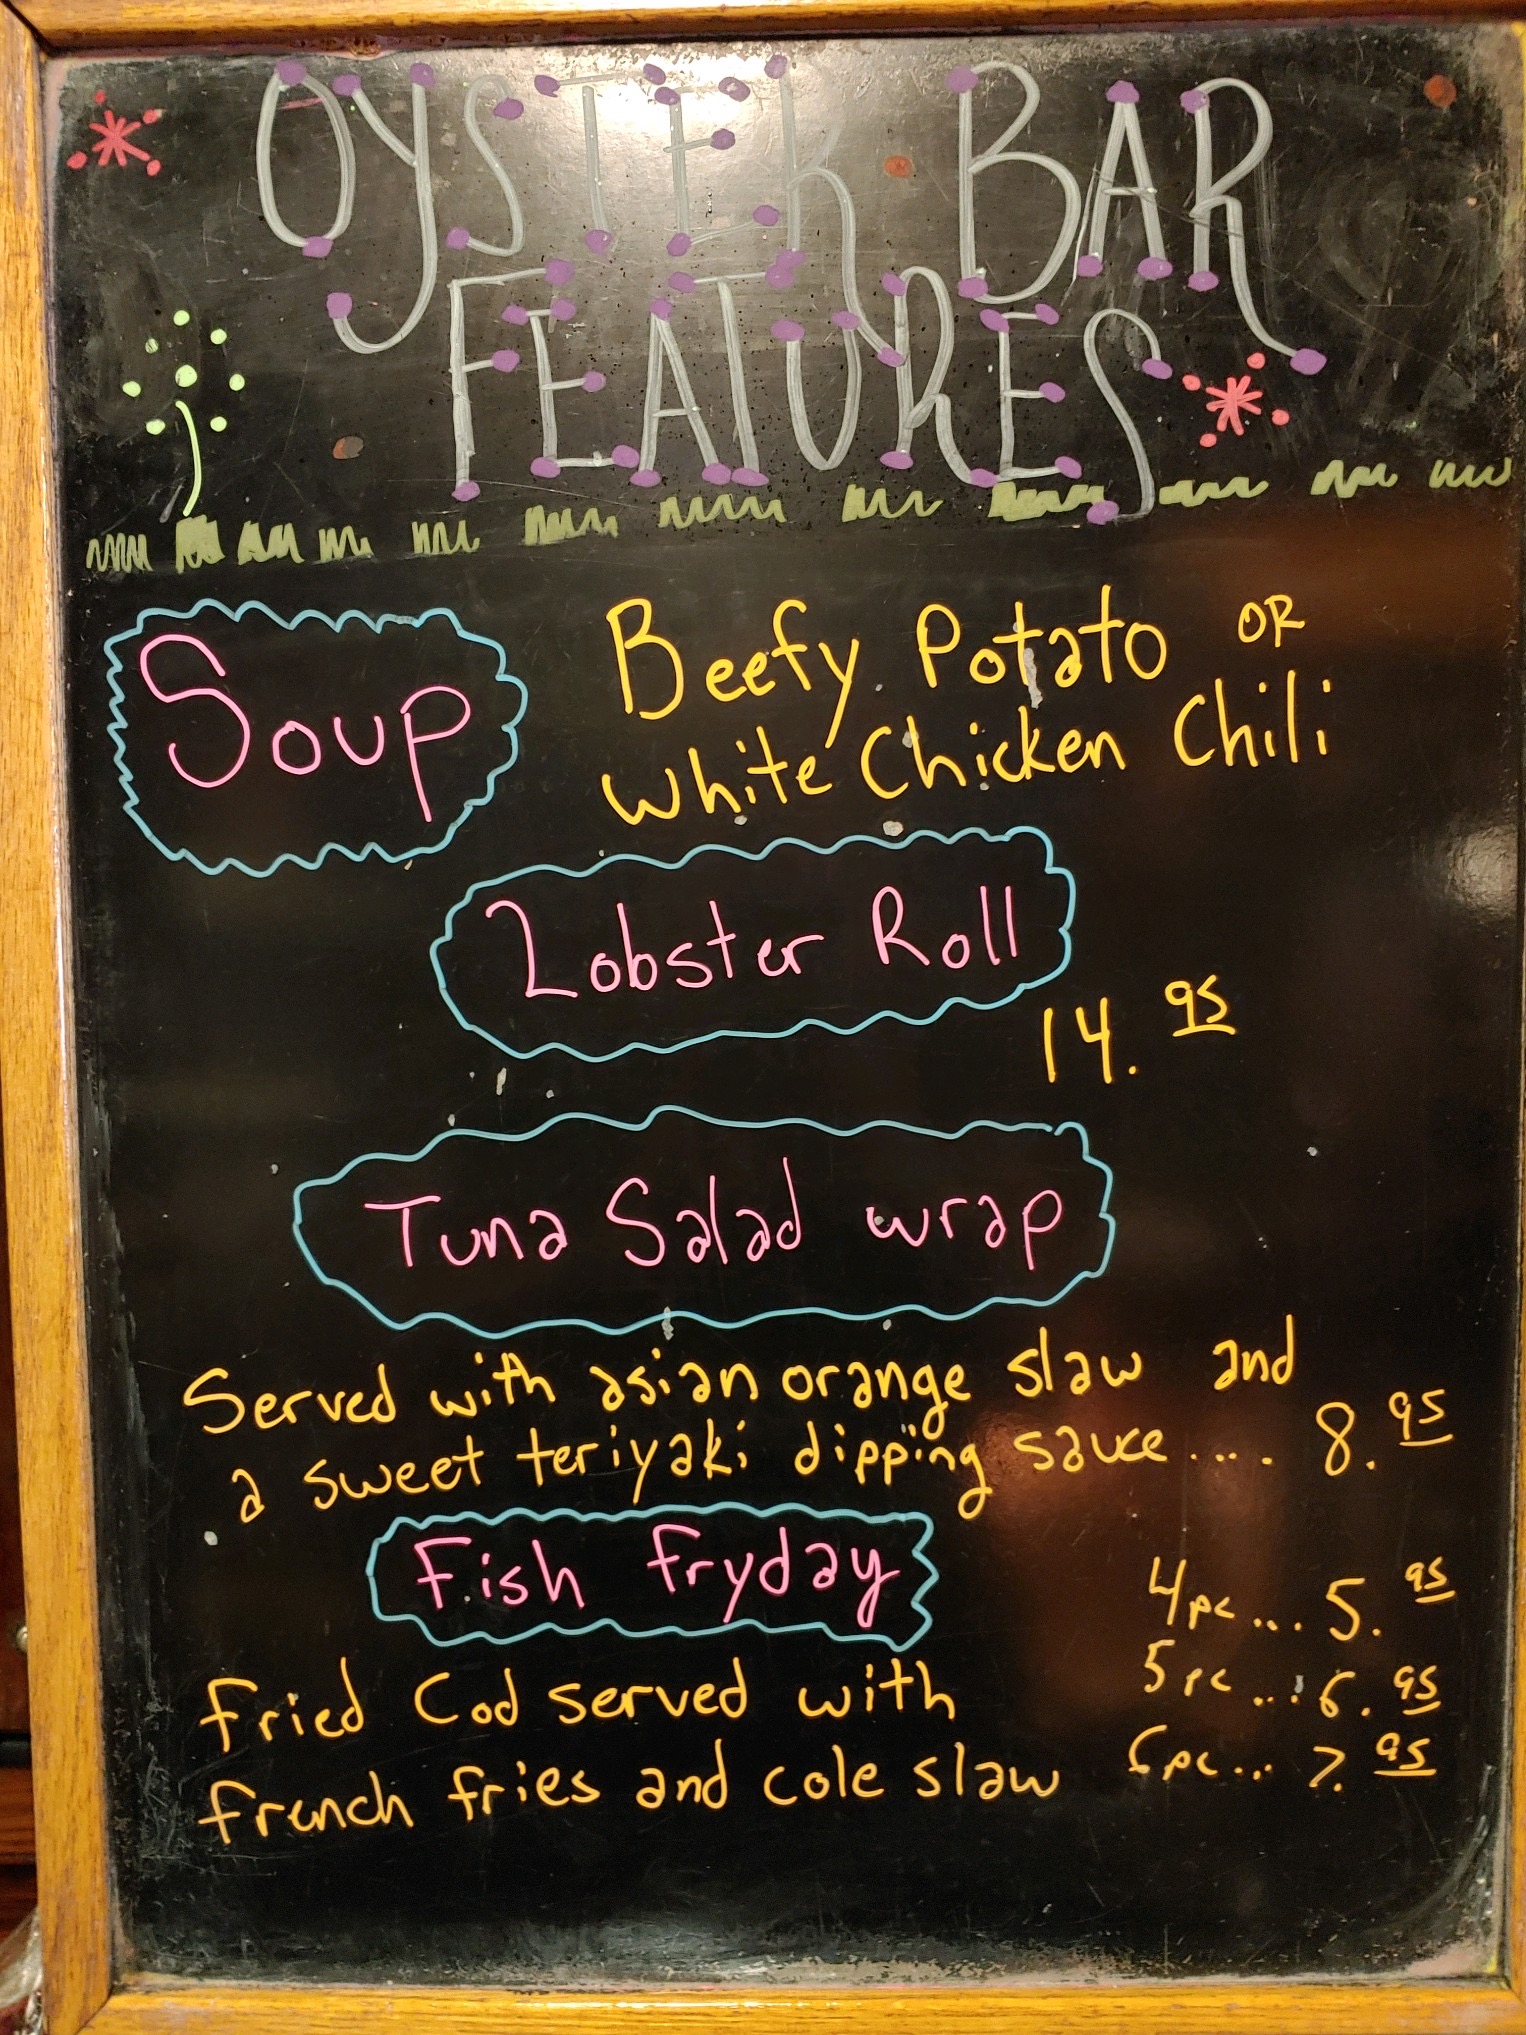 OYSTER BAR
FEATURES
Soup
Beefy Potato OR
White Chicken Chili
Lobster Roll
14.95
Tuna Salad wrap
Served with asian orange slaw and
a sweet teriyaki dipping sauce.... 8.95
Fish fryday
4pc... 5.95
5pc...6.95
6pc... 7.95
Fried Cod served with
french fries and cole slaw